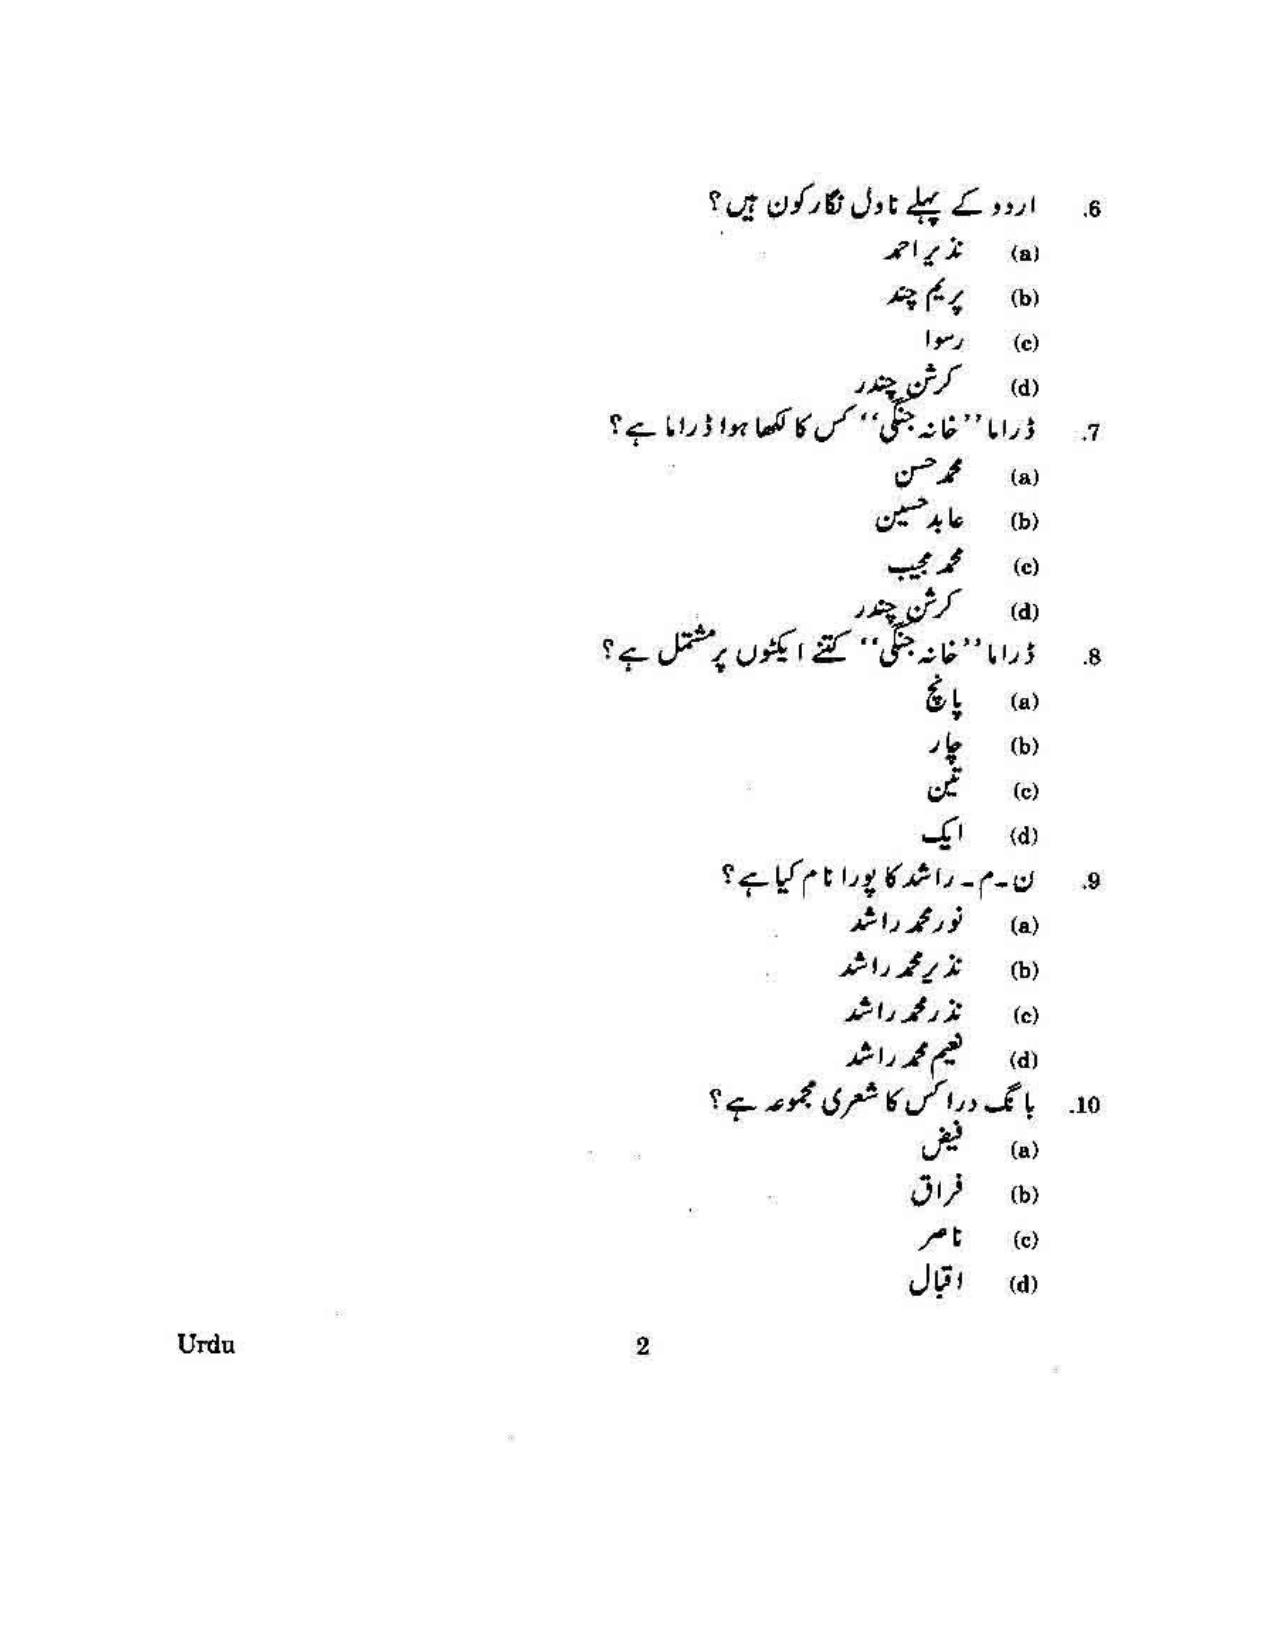 6. اردو کے پہلے ناول نگار کون ہیں؟
(a) نذیر احمد
(b) پریم چند
(c) رسوا
(d) کرشن چندر
7. ڈراما ’’خانہ جنگی‘‘ کس کا لکھا ہوا ڈراما ہے؟
(a) محمد حسن
(b) عابد حسین
(c) محمد مجیب
(d) کرشن چندر
8. ڈراما ’’خانہ جنگی‘‘ کتنے ایکٹوں پر مشتمل ہے؟
(a) پانچ
(b) چار
(c) تین
(d) ایک
9. ن۔م۔ راشد کا پورا نام کیا ہے؟
(a) نور محمد راشد
(b) نذیر محمد راشد
(c) نذر محمد راشد
(d) نعیم محمد راشد
10. بانگ درا کس کا شعری مجموعہ ہے؟
(a) فیض
(b) فراق
(c) ناصر
(d) اقبال
Urdu 2